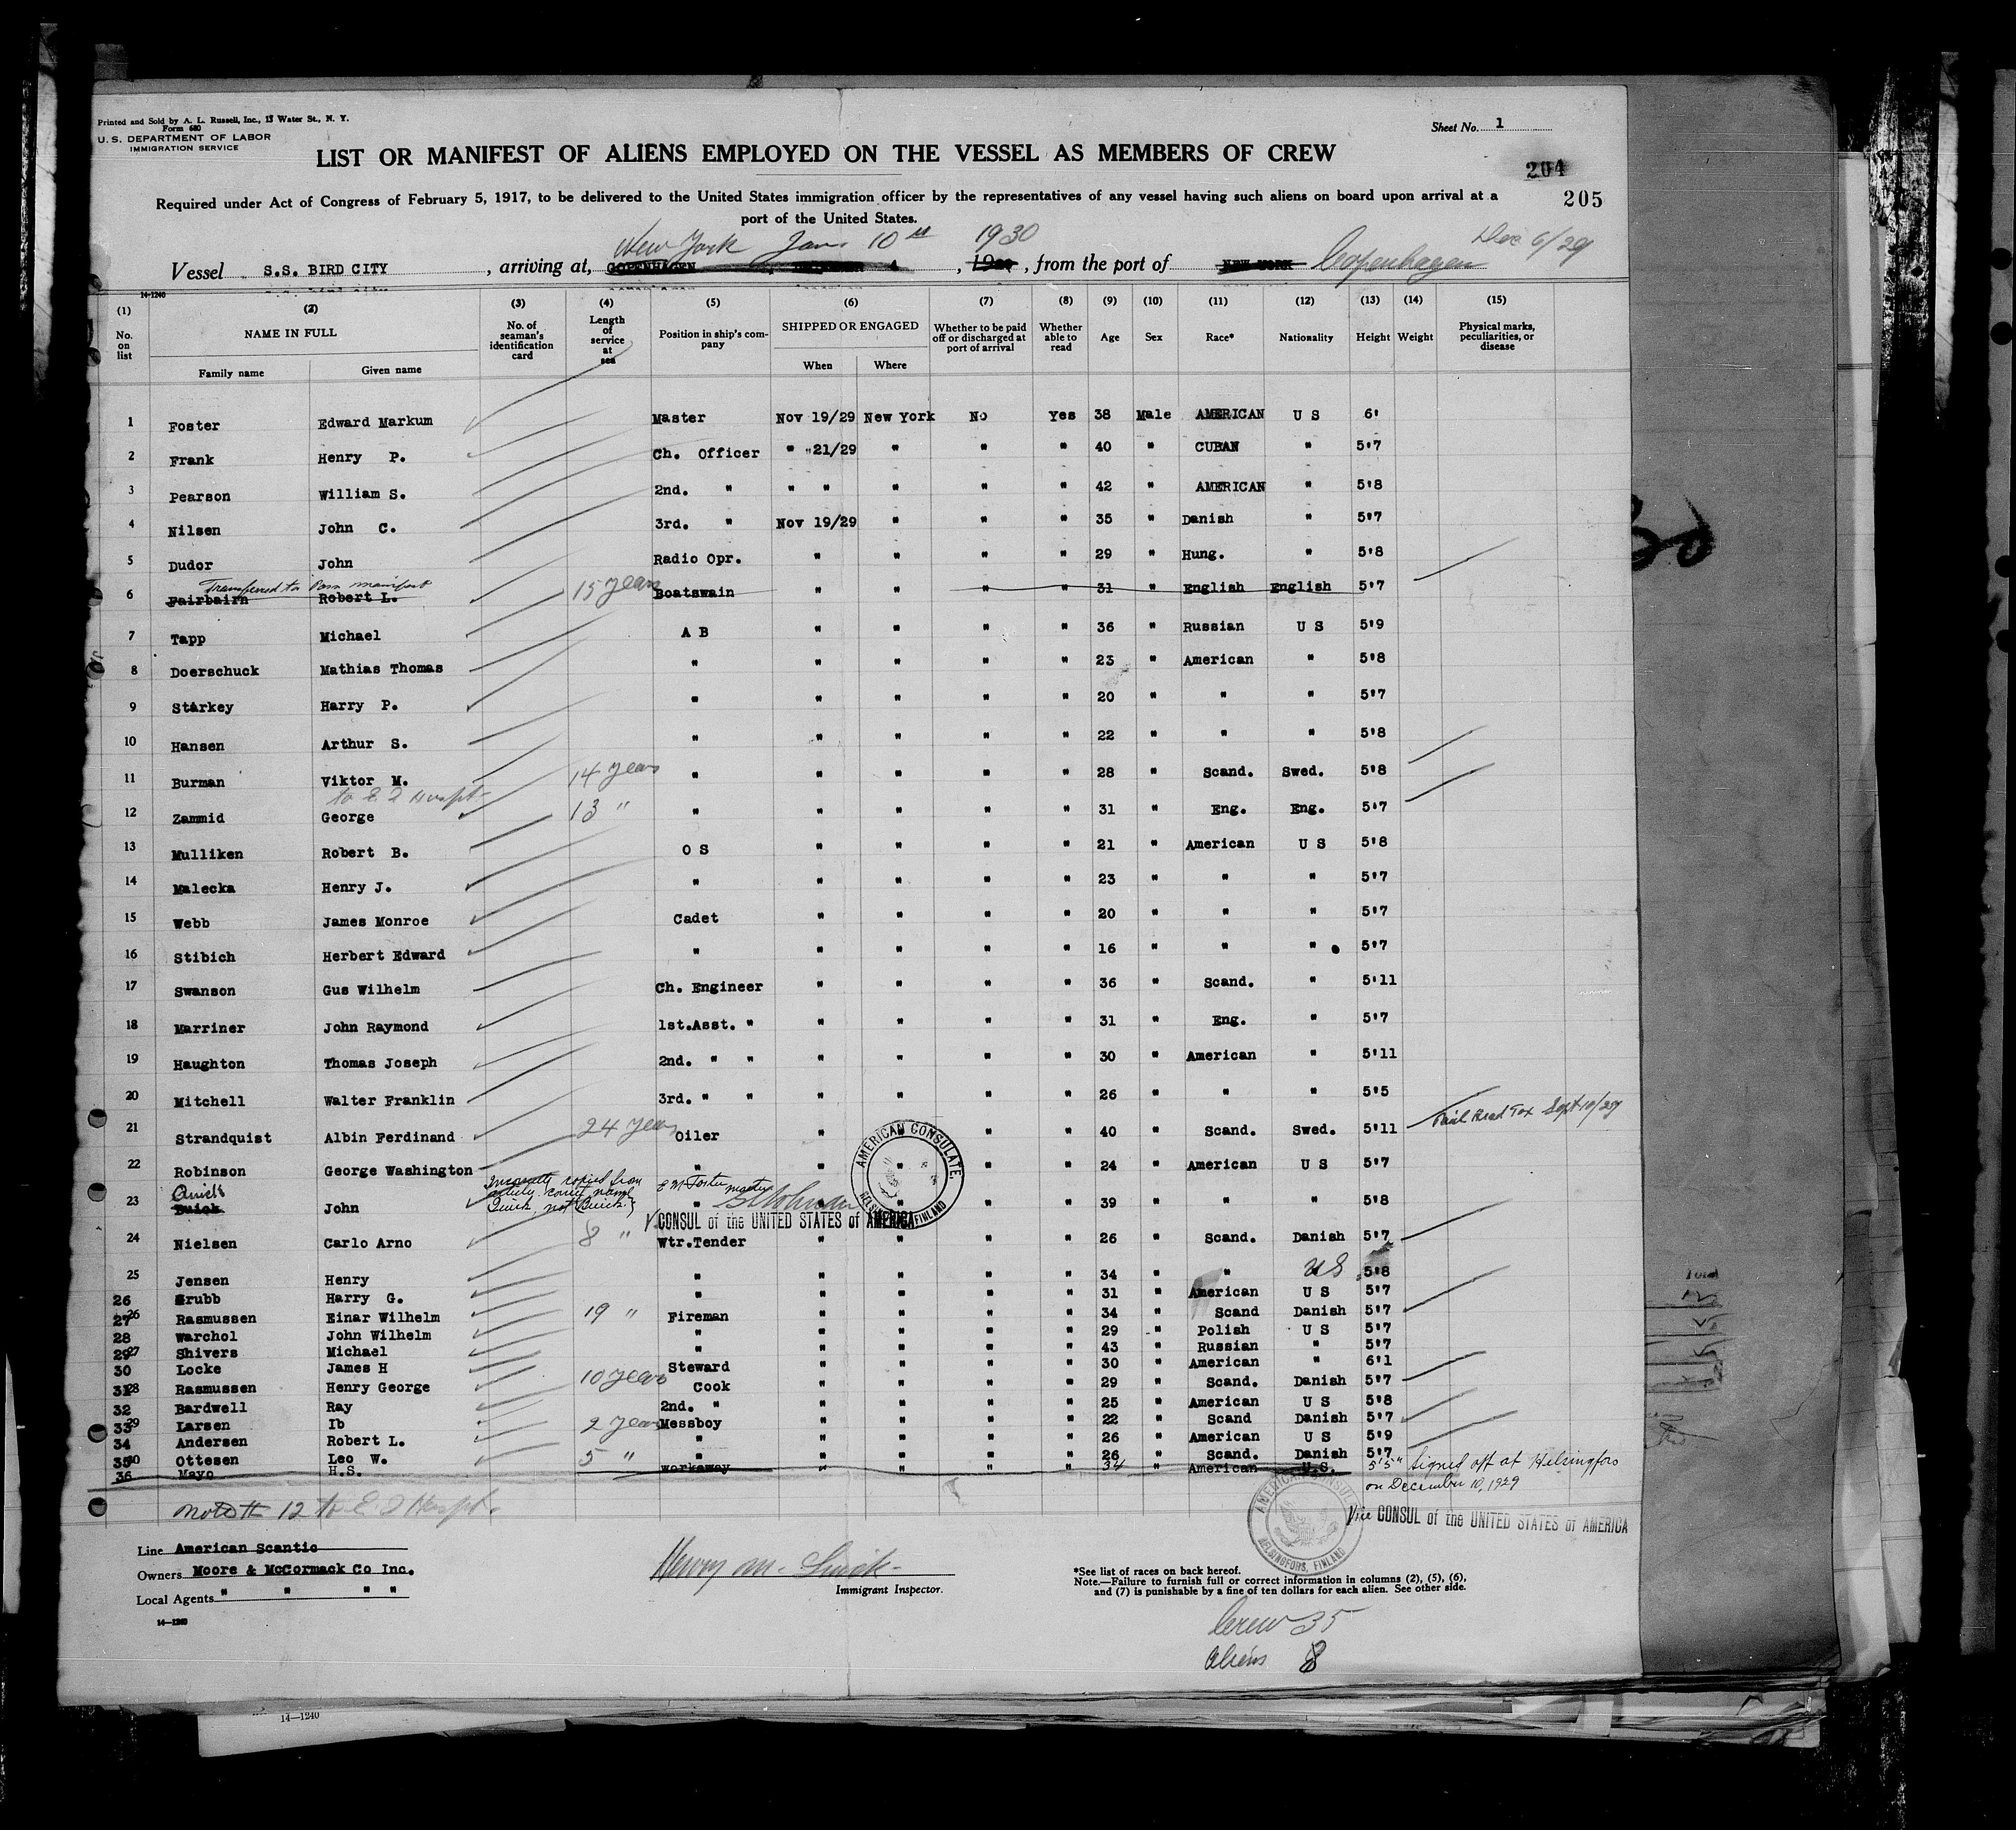 Printed and Sold by A. L. Russell, Inc., 13 Water St., N. Y.
Form 680
U. S. DEPARTMENT OF LABOR
IMMIGRATION SERVICE
Sheet No. 1
LIST OR MANIFEST OF ALIENS EMPLOYED ON THE VESSEL AS MEMBERS OF CREW
204
205
Required under Act of Congress of February 5, 1917, to be delivered to the United States immigration officer by the representatives of any vessel having such aliens on board upon arrival at a
port of the United States.
New York Jan. 10th 1930 Dec 6/29
Vessel S.S. BIRD CITY, arriving at, COPENHAGEN, 19, from the port of NEW YORK Copenhagen
14-1240
(1) (2) (3) (4) (5) (6) (7) (8) (9) (10) (11) (12) (13) (14) (15)
No. on list NAME IN FULL No. of seaman's identification card Length of service at sea Position in ship's company SHIPPED OR ENGAGED Whether to be paid off or discharged at port of arrival Whether able to read Age Sex Race* Nationality Height Weight Physical marks, peculiarities, or disease
Family name Given name When Where
1 Foster Edward Markum Master Nov 19/29 New York No Yes 38 Male AMERICAN U S 6'
2 Frank Henry P. Ch. Officer " "21/29 " " " 40 " CUBAN " 5'7
3 Pearson William S. 2nd. " " " " " " 42 " AMERICAN " 5'8
4 Nilsen John C. 3rd. " Nov 19/29 " " " 35 " Danish " 5'7
5 Dudor John Radio Opr. " " " " 29 " Hung. " 5'8
Transferred to Pass manifest
6 Fairbairn Robert L. 15 years Boatswain " " " " 31 " English English 5'7
7 Tapp Michael A B " " " " 36 " Russian U S 5'9
8 Doerschuck Mathias Thomas " " " " " 23 " American " 5'8
9 Starkey Harry P. " " " " " 20 " " " 5'7
10 Hansen Arthur S. " " " " " 22 " " " 5'8
11 Burman Viktor M. 14 years " " " " " 28 " Scand. Swed. 5'8
to E. I Hospt-
12 Zammid George 13 " " " " " " 31 " Eng. Eng. 5'7
13 Mulliken Robert B. O S " " " " 21 " American U S 5'8
14 Malecka Henry J. " " " " " 23 " " " 5'7
15 Webb James Monroe Cadet " " " " 20 " " " 5'7
16 Stibich Herbert Edward " " " " " 16 " " " 5'7
17 Swanson Gus Wilhelm Ch. Engineer " " " " 36 " Scand. " 5'11
18 Marriner John Raymond 1st.Asst. " " " " " 31 " Eng. " 5'7
19 Haughton Thomas Joseph 2nd. " " " " " " 30 " American " 5'11
20 Mitchell Walter Franklin 3rd. " " " " " " 26 " " " 5'5
21 Strandquist Albin Ferdinand 24 years Oiler " " " " 40 " Scand. Swed. 5'11 Paid Head Tax Sept 10/29
22 Robinson George Washington " " " " " 24 " American U S 5'7
Quick Incorrectly copied from
articles. correct name
Quick, not Buick. E M Foster master
23 Buick John " " " " 39 " " " 5'8
AMERICAN CONSULATE HELSINGFORS, FINLAND
V. CONSUL of the UNITED STATES of AMERICA
24 Nielsen Carlo Arno 8 " Wtr.Tender " " " " 26 " Scand. Danish 5'7
25 Jensen Henry " " " " " 34 " " US 5'8
26 Grubb Harry G. " " " " " 31 " American U S 5'7
27 26 Rasmussen Einar Wilhelm 19 " Fireman " " " " 34 " Scand Danish 5'7
28 Warchol John Wilhelm " " " " " 29 " Polish U S 5'7
29 27 Shivers Michael " " " " " 43 " Russian " 5'7
30 Locke James H Steward " " " " 30 " American " 6'1
31 28 Rasmussen Henry George 10 years Cook " " " " 29 " Scand. Danish 5'7
32 Bardwell Ray 2nd. " " " " " 25 " American U S 5'8
33 29 Larsen Ib 2 years Messboy " " " " 22 " Scand Danish 5'7
34 Andersen Robert L. " " " " " 26 " American U S 5'9
35 30 Ottesen Leo W. 5 " " " " " " 26 " Scand. Danish 5'7
36 Mayo H.S. Workaway " " " " 34 " American U.S. 5'5" Signed off at Helsingfors
on December 10, 1929
12 to E. I Hospt.
AMERICAN CONSULATE HELSINGFORS, FINLAND
Vice CONSUL of the UNITED STATES of AMERICA
Line American Scantic
Owners Moore & McCormack Co Inc.
Local Agents " " " "
14-1240
Immigrant Inspector.
*See list of races on back hereof.
Note.—Failure to furnish full or correct information in columns (2), (5), (6),
and (7) is punishable by a fine of ten dollars for each alien. See other side.
Crew 35
Aliens 8
14-1240
Total